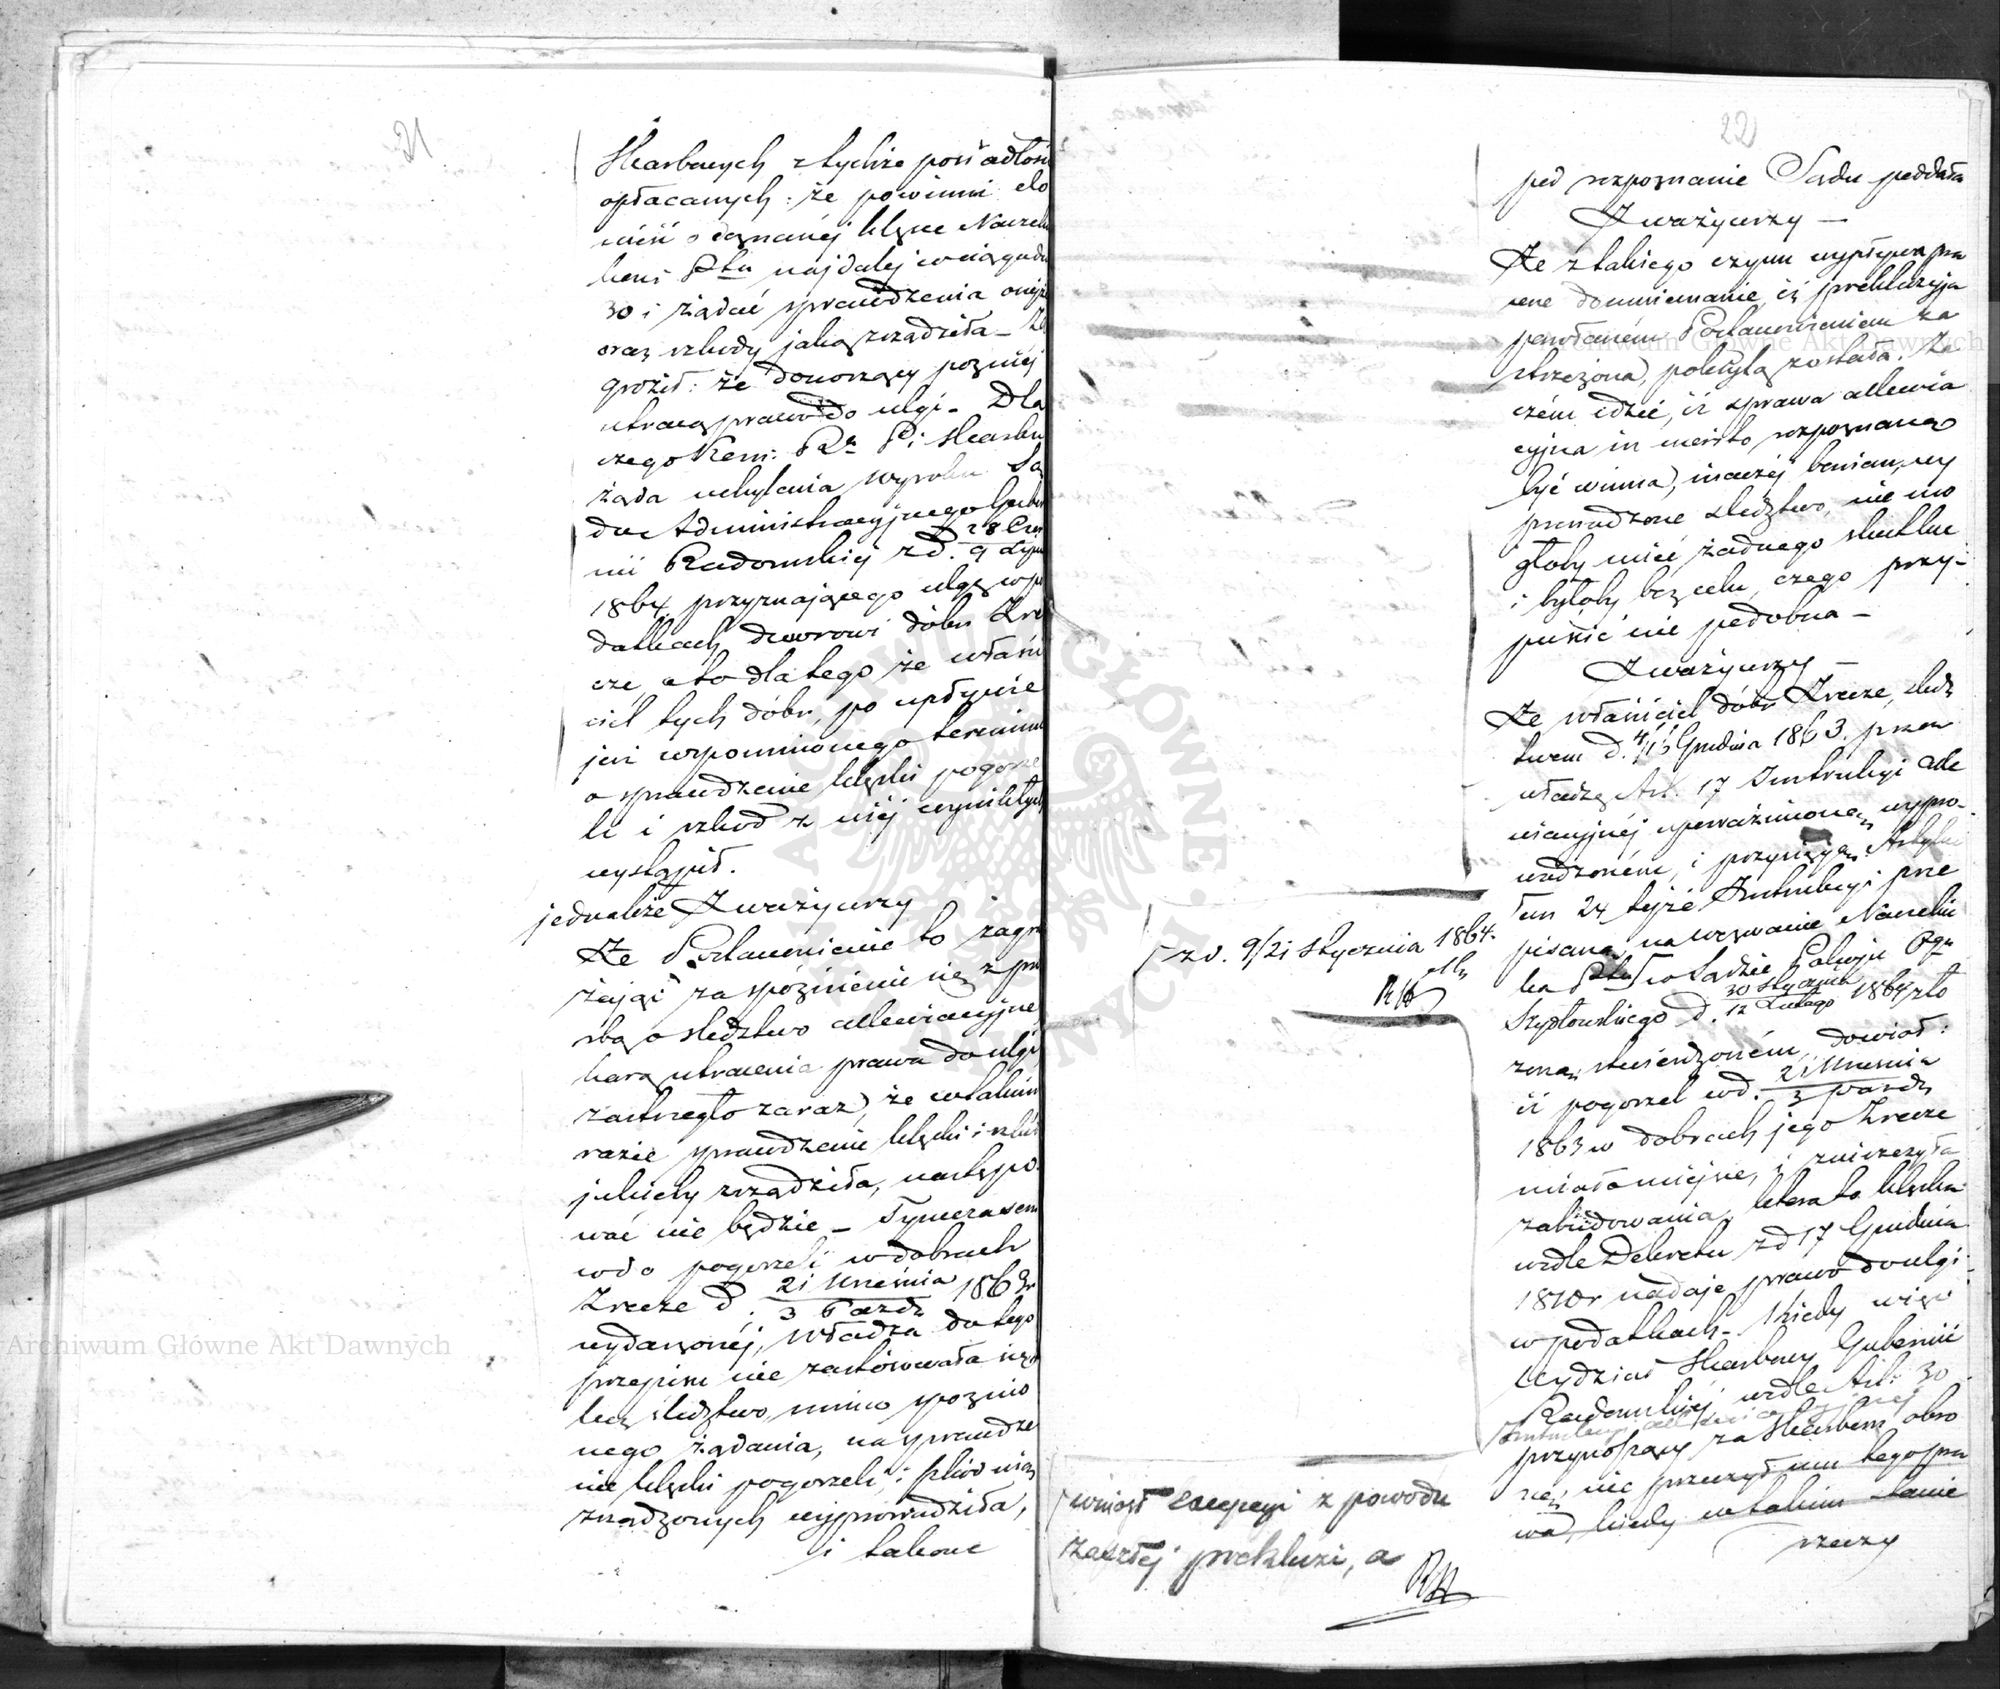 21
Skarbowych z tychże posiadłośc
opłacanych: że powinni do
nieść o doznanej klęsce Naczel
kowi Ptu najdalej w ciągu dni
30 i żądać sprawdzenia onejże
oraz szkody jaką zrządziła – Za
groził: że donoszący później
utracą prawo do ulgi – Dla
czego Kom: Ra Pi Skarbu
żąda uchylenia wyroku Są
du Administracyjnego Guber
nii Radomskiej z d. 28 Czer / 9 Lipca
1864, przyznającego ulgę w po
datkach dworowi dóbr Zre
cze, a to dla tego że właści
ciel tych dóbr, po upływie
już wspomnionego terminu
o sprawdzenie klęski pogorze
li i szkód z niéj wynikłych
wystąpił.
jednakże Zważywszy
Że Postanowienie to zagra
żając za spóźnienie się z pro
śbą o śledztwo allewiacyjne
karą utracenia prawa do ulgi
zastrzegło zaraz, że w takim
razie sprawdzenie klęski i szkód
jakieby zrządziła, nastąpo-
wać nie będzie – Tymczasem
co do pogorzeli w dobrach
Zrecze d. 21 Września / 3 Paźdz 1863r
wydarzonéj, Władza do tego
przepisu nie zastósowała się
lecz śledztwo, mimo spóźnio
nego żądania, na sprawdze
nie klęski pogorzeli, i szkód nią
zrządzonych wyprowadziła,
i takowe
22
pod rozpoznanie Sądu poddała
Zważywszy –
Że z takiego czynu wypływa pra
wne domniemanie, iż prekluzyja
powołaném Postanowieniem za
strzeżona, pokrytą została. Za
czém idzie, iż sprawa allewia
cyjna in merito rozpoznaną
być winna, inaczéj bowiem, wy
prowadzone śledztwo, nie mo
głoby mieć żadnego skutku
i byłoby bez celu, czego przy-
puścić nie podobna –
Zważywszy –
Że właściciel dóbr Zrecze, śledz
twem d. 4/16 Grudnia 1863. przez
władzę Art. 17 Instrukcyi alle
wiacyjnéj upoważnioną, wypro-
wadzoném, i przysięgą Artyku
łem 24 téjże Instrukcyi prze
pisaną, na wezwanie Naczelni
ka Ptu w Sądzie Pokoju Ogu
z d. 9/21 Stycznia 1864.
Szydłowskiego d. 30 Stycznia / 12 Lutego 1864 zło
żoną, stwierdzoném, dowiódł:
iż pogorzel w d. 21 Września / 3 Paźdz
1863 w dobrach jego Zrecze
miała miejsce, i zniszczyła
zabudowania, która to klęska
wedle Dekretu z d 17 Grudnia
1810r nadaje prawo do ulgi
w podatkach. Kiedy więc
Wydział Skarbowy Gubernii
Radomskiéj, wedle Art: 30
Instrukcyi allewiacyjnéj
przynoszący za Skarbem obro
nę, nie przeczył mu tego pra
wa, kiedy w takim stanie
rzeczy
wniósł excepcyi z powodu
zaszłej prekluzi, a